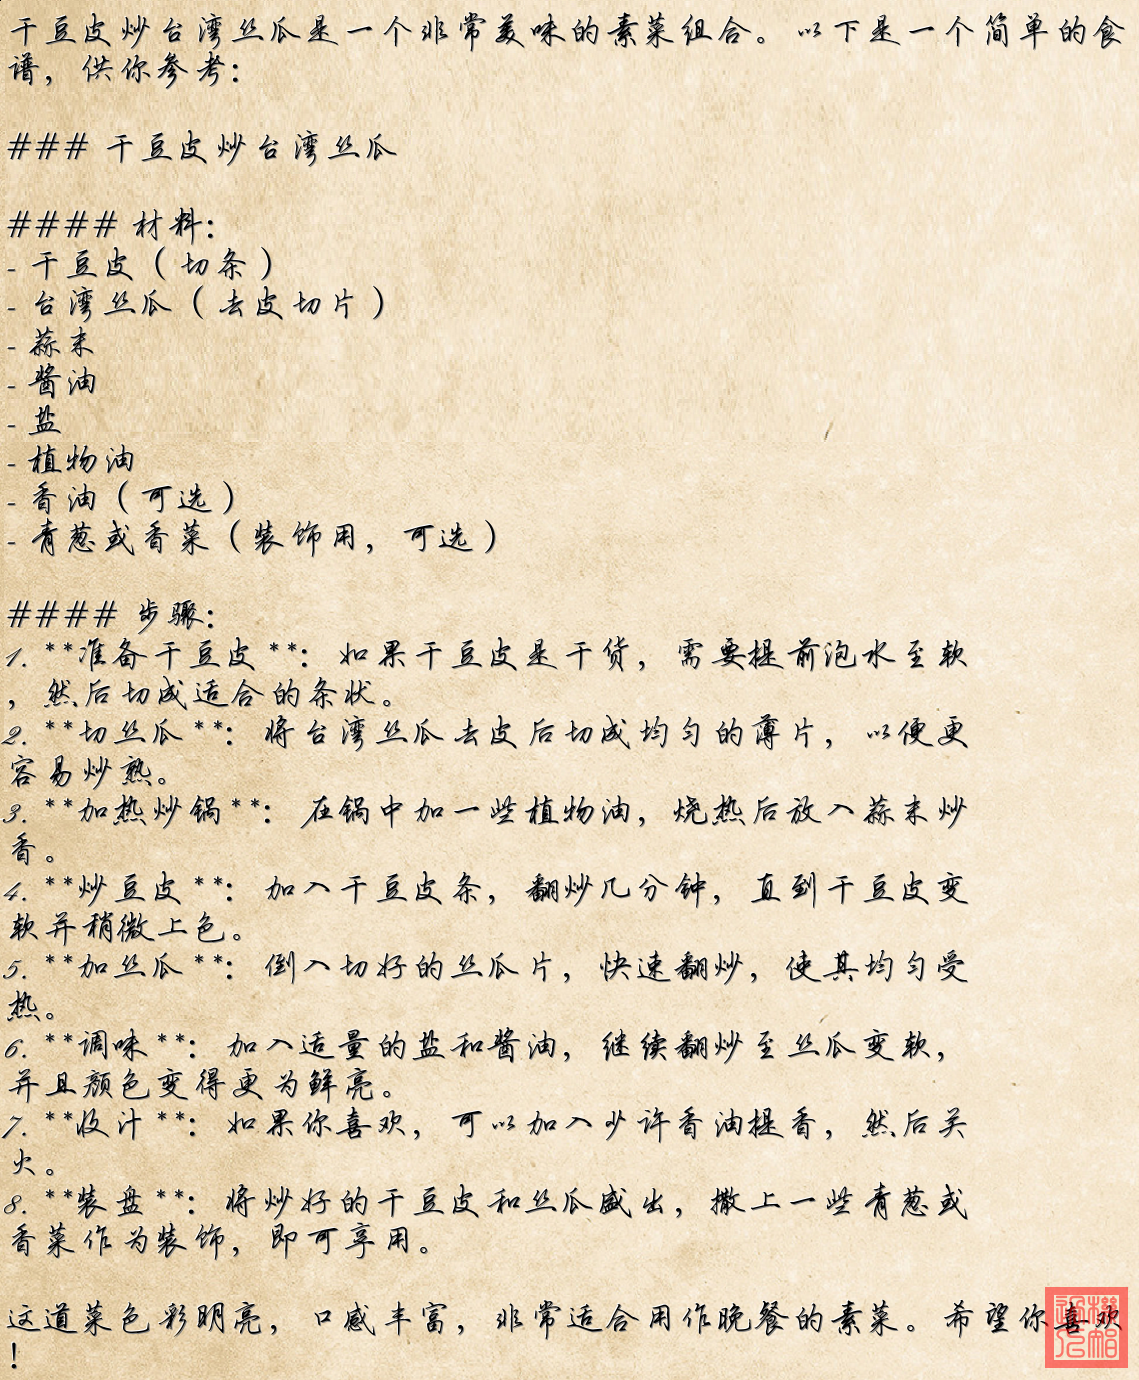 干豆皮炒台湾丝瓜是一个非常美味的素菜组合。以下是一个简单的食
谱，供你参考：
### 干豆皮炒台湾丝瓜
#### 材料：
- 干豆皮（切条）
- 台湾丝瓜（去皮切片）
- 蒜末
- 酱油
- 盐
- 植物油
- 香油（可选）
- 青葱或香菜（装饰用，可选）
#### 步骤：
1. **准备干豆皮**：如果干豆皮是干货，需要提前泡水至软
，然后切成适合的条状。
2. **切丝瓜**：将台湾丝瓜去皮后切成均匀的薄片，以便更
容易炒熟。
3. **加热炒锅**：在锅中加一些植物油，烧热后放入蒜末炒
香。
4. **炒豆皮**：加入干豆皮条，翻炒几分钟，直到干豆皮变
软并稍微上色。
5. **加丝瓜**：倒入切好的丝瓜片，快速翻炒，使其均匀受
热。
6. **调味**：加入适量的盐和酱油，继续翻炒至丝瓜变软，
并且颜色变得更为鲜亮。
7. **收汁**：如果你喜欢，可以加入少许香油提香，然后关
火。
8. **装盘**：将炒好的干豆皮和丝瓜盛出，撒上一些青葱或
香菜作为装饰，即可享用。
这道菜色彩明亮，口感丰富，非常适合用作晚餐的素菜。希望你喜欢
！